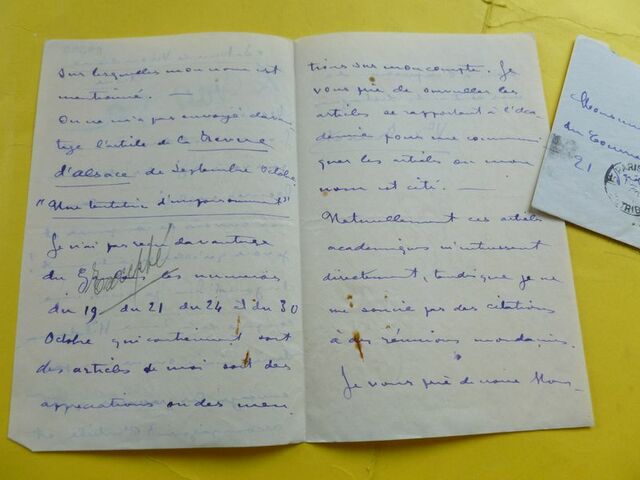 sur lesquelles mon nom est
mentionné. —
On ne m'a pas envoyé davan
tage l'article de la Revue
d'Alsace de Septembre Octobre
"Une tentative d'empoisonnement"
Je n'ai pas reçu davantage
du les numéros
du 19 du 21 du 24 et du 30
Octobre qui contiennent soit
des articles de moi soit des
appreciations ou des men
tions sur mon compte. Je
vous prie de surveiller les
articles se rapportant à l'Aca
démie pour me communi
quer les articles où mon
nom est cité. —
Naturellement ces articles
académiques m'intéressent
directement, tandis que je ne
me soucie pas des citations
à des réunions mondaines.
Je vous prie de croire Mons-
Monsieur
du
21
PARIS